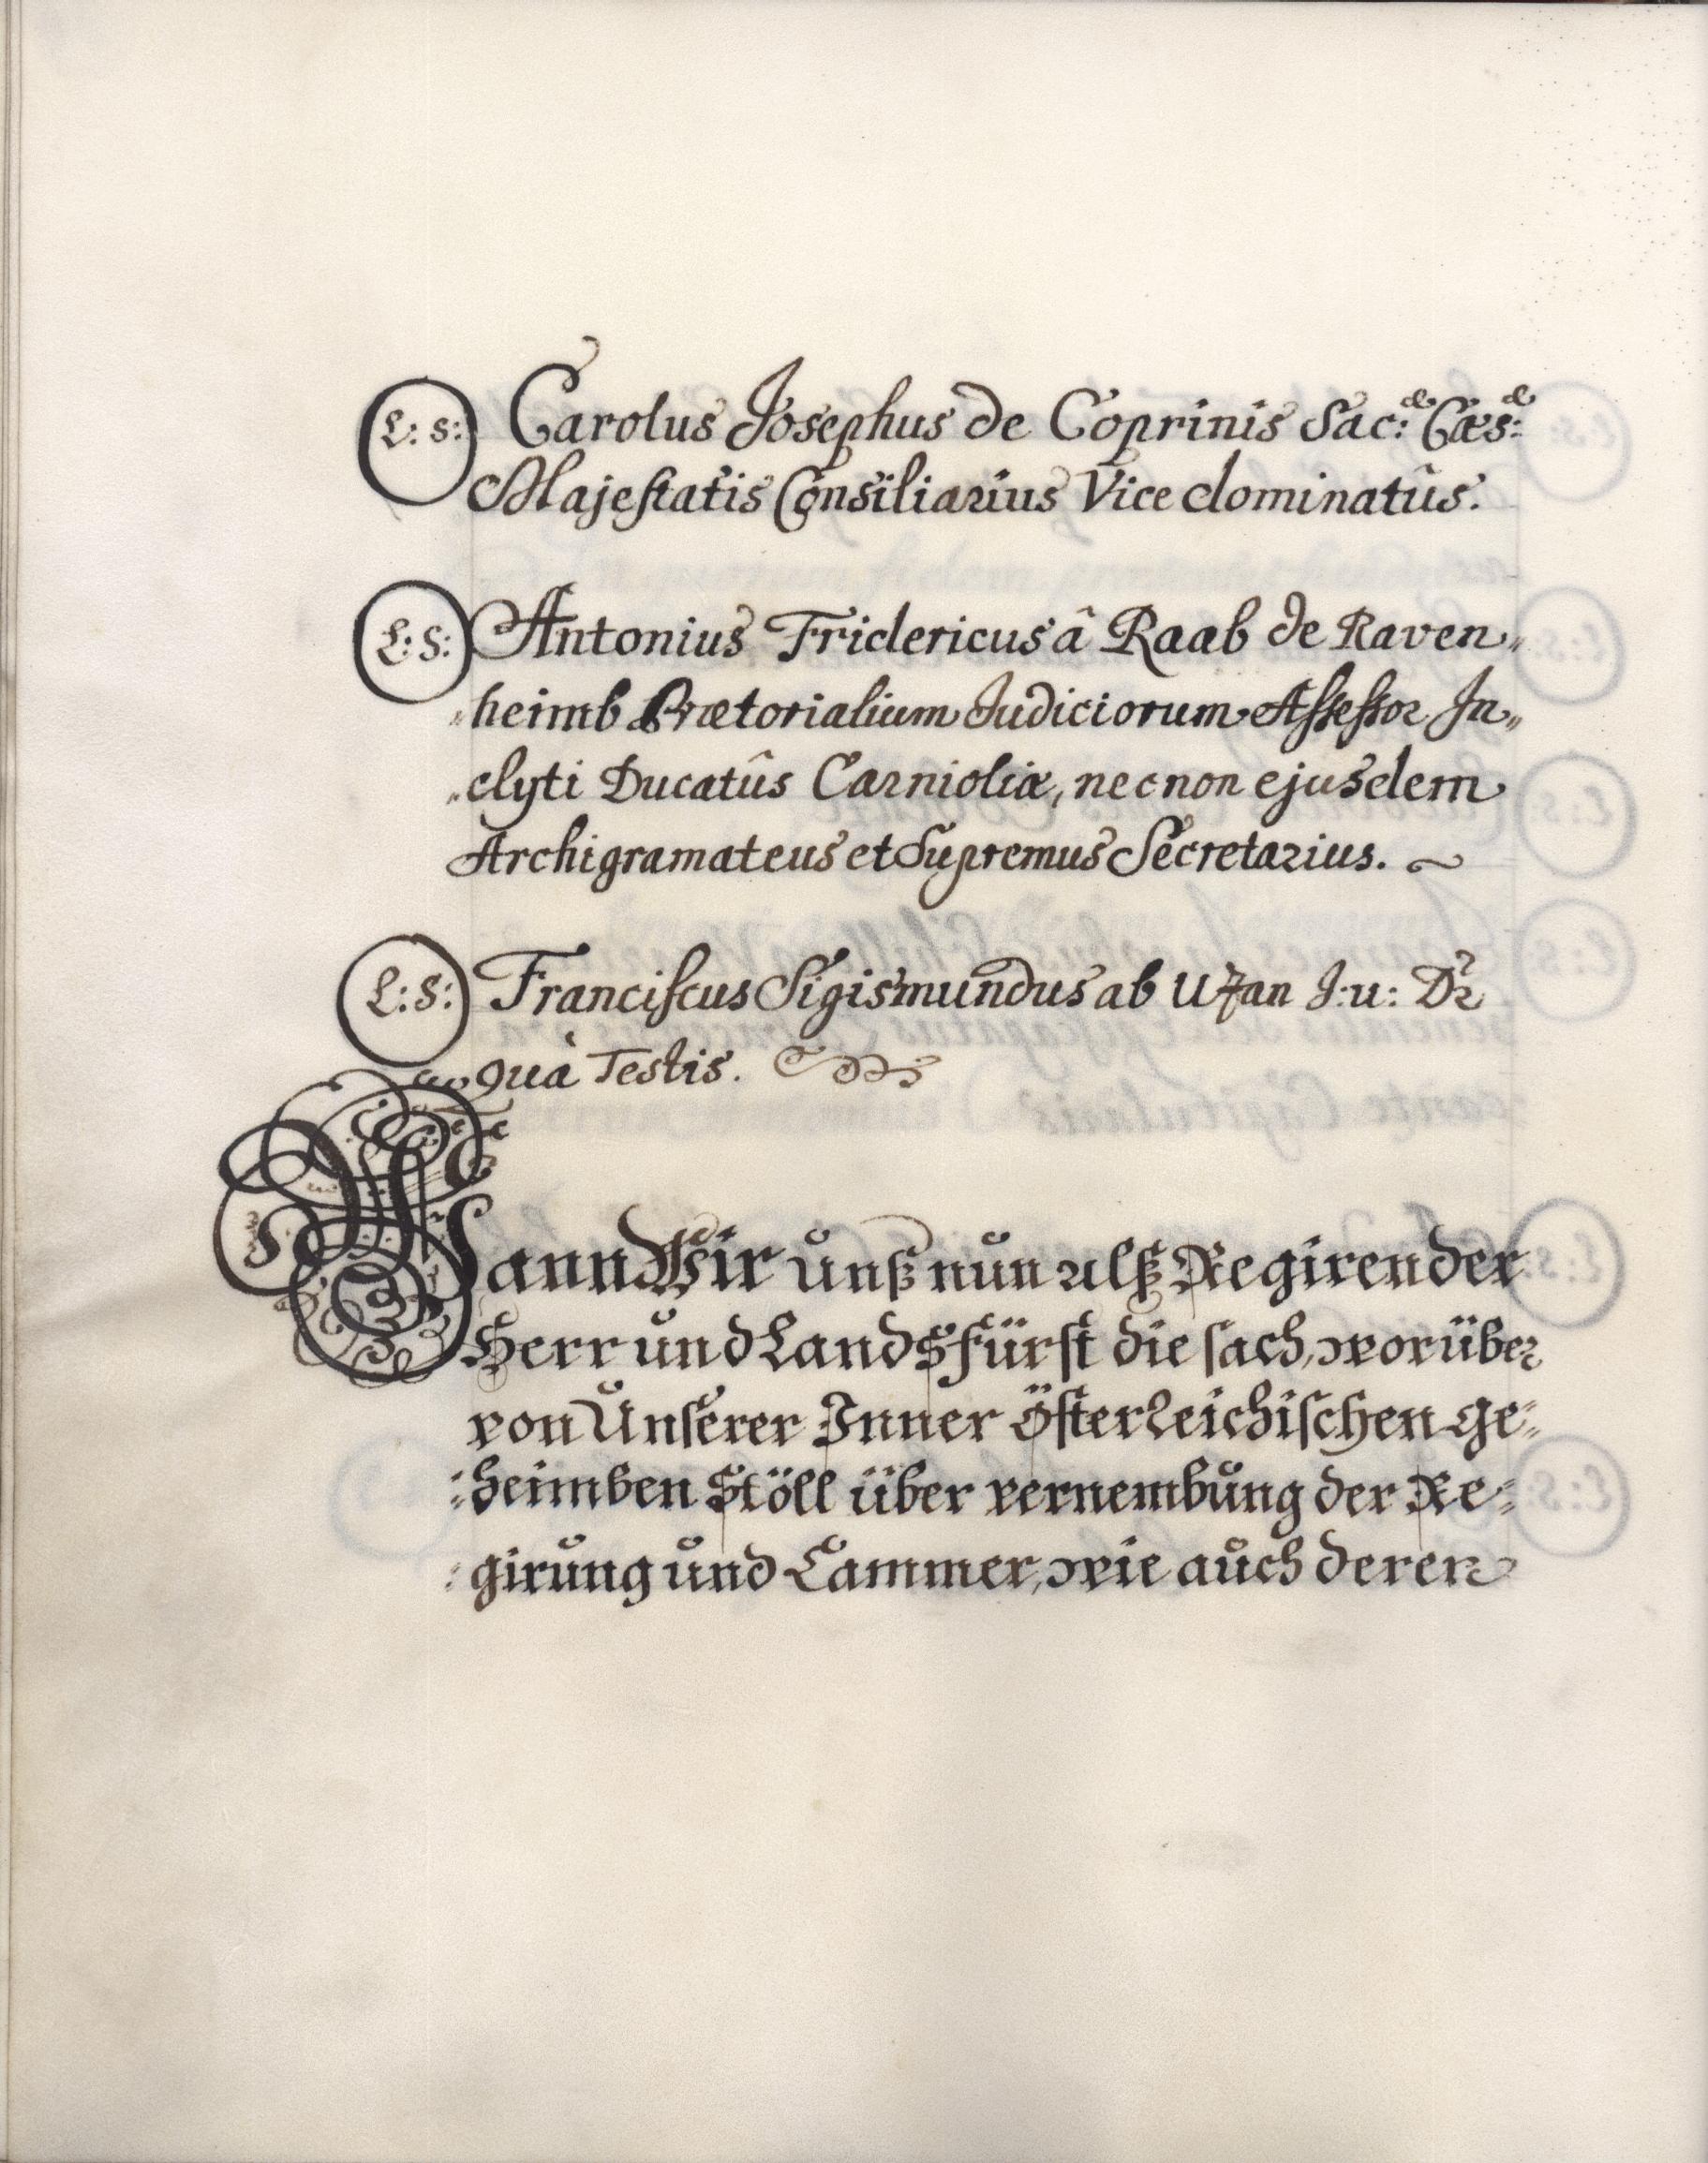 L: S: Carolus Josephus de Coprinis Sac:ae Cæs:ae
Majestatis Consiliarius Vice dominatûs.
L: S: Antonius Fridericus â Raab de Raven„
„heimb Prætorialium Judiciorum Assessor In„
„clyti Ducatûs Carnioliæ, necnon ejusdem
Archigramateus et Supremus Secretarius.
L: S: Franciscus Sigismundus ab Uzan J: u: Dr
quà Testis.
Wann Wir unß nun alß Regirender
Herr und Landsfürst die sach, worüber
von Unserer Inner Österreichischen Ge„
„heimben Stöll über vernembung der Re„
„girung und Cammer, wie auch deren